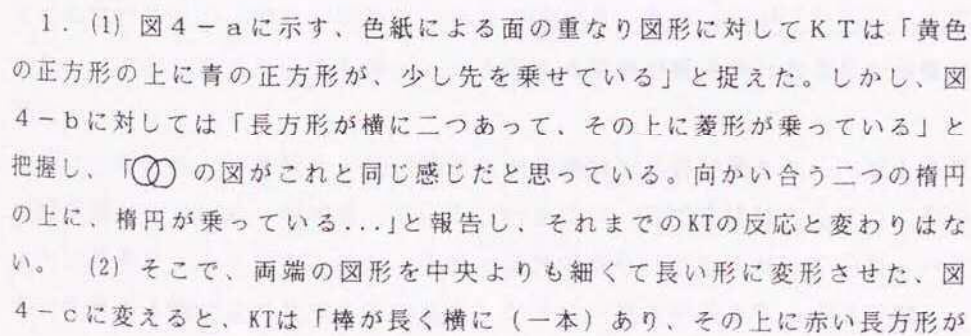 1．(1) 図４－ａに示す、色紙による面の重なり図形に対してＫＴは「黄色
の正方形の上に青の正方形が、少し先を乗せている」と捉えた。しかし、図
４－ｂに対しては「長方形が横に二つあって、その上に菱形が乗っている」と
把握し、「 の図がこれと同じ感じだと思っている。向かい合う二つの楕円
の上に、楕円が乗っている...」と報告し、それまでのKTの反応と変わりはな
い。 (2) そこで、両端の図形を中央よりも細くて長い形に変形させた、図
４－ｃに変えると、KTは「棒が長く横に（一本）あり、その上に赤い長方形が